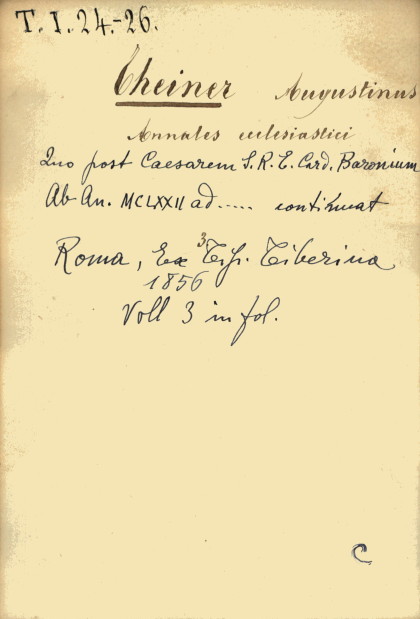 T. I. 24.-26.
Theiner Augustinus
Annales ecclesiastici
Quo post Caesarem S. R. E. Card. Baronium
Ab An. MCLXXII ad..... continuat
Roma, Ex Tip. Tiberina
1856
3
Voll 3 in fol.
C